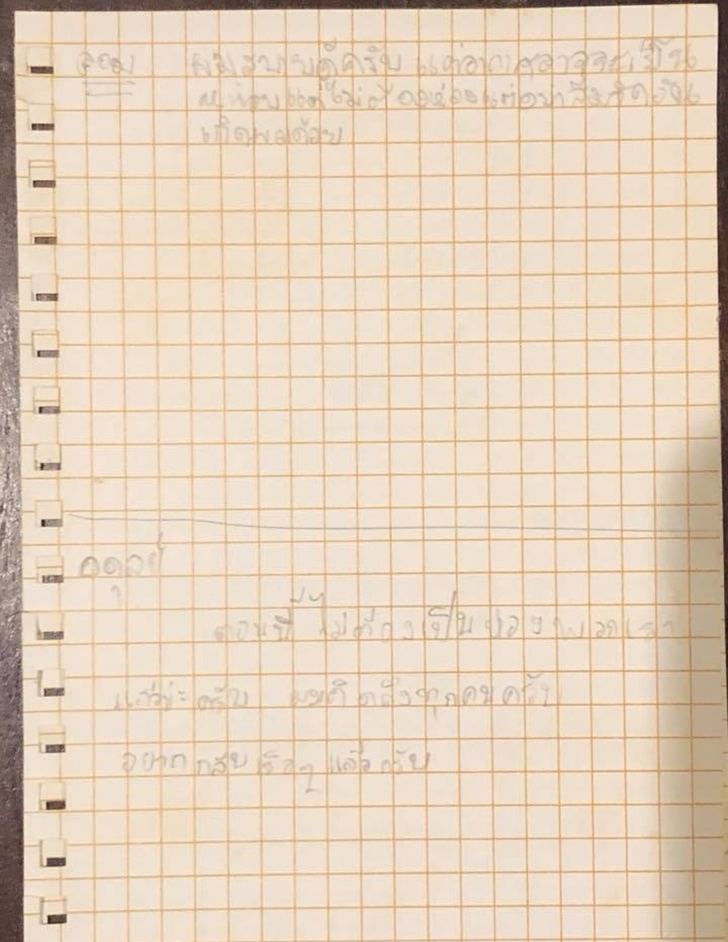 ดอม ผมสบายดีครับ แต่อากาศอาจจะเย็น
แต่ไม่ต้องห่วงแต่อย่าลืมจัดวัน
เกิดผมด้วย
อดุลย์
ตอนนี้ ไม่ต้องเป็นห่วงพวกเรา
แล้วนะครับ ผมคิดถึงทุกคนครับ
อยากกลับเร็วๆ แล้วครับ